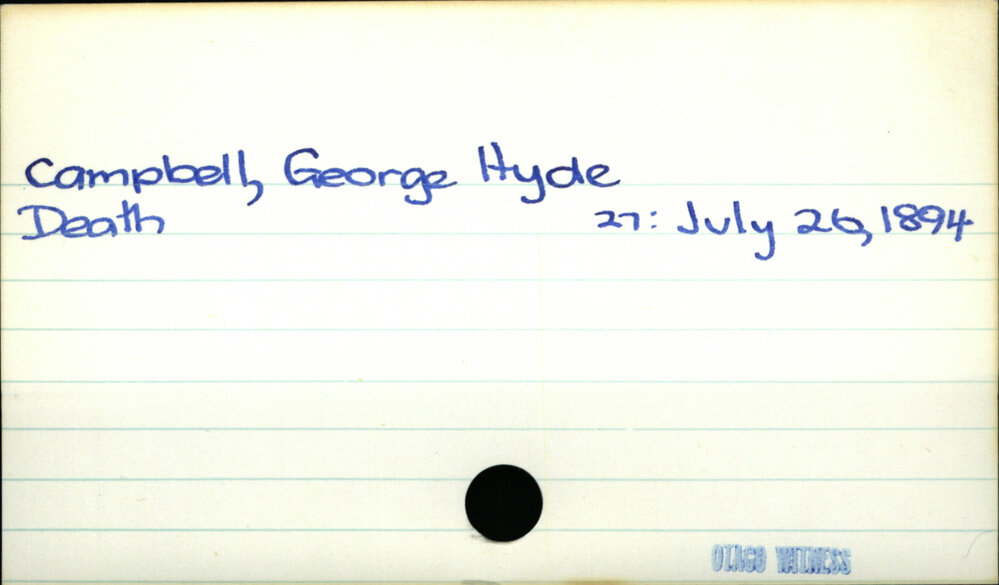 Campbell, George Hyde
Death 27: July 26, 1894
OTAGO WITNESS